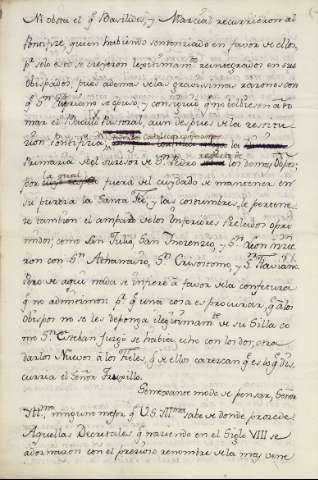 Ni obsta el q.e Basilides, y Marcial recurrieron al
Pontifice, quien habiendo sentenciado en favor de ellos,
p.r solo esto se creyeron legitimam.te reintegrados en sus
Obispados, pues ademas de las gravisimas razones con
q.e S.n Cypriano se opuso, y consiguió q.e no bolviesen a to
mar el Baculo Pastoral, aun despues de la restitu
cion Pontificia,
Primacia de el sucesor de S.n Pedro los demas Obispos;
por la qual fuera del cuydado de mantener en
su pureza la Santa Fé, y las costumbres, le pertene
ce tambien el amparo de los Inferiores Prelados opri
midos; como San Julio, San Inocencio, y S.n Leon hicie
ron con S.n Athanasio, S.n Crisostomo, y S.n Flaviano.
Pero de aqui nada se infiere à favor de la consequencia
q.e no admitimos. p.r q.e una cosa es procurar q.e a los
Obispos no se les deponga ilegitimam.te de su Silla co
mo S.n Esteban juzgó se habia echo con los dos, otra
darlos Nuevos à los Fieles, q.e de ellos carezcan q.e es lo q.e dis
curria el Señor Trupillo.
Semexante modo de pensar, Señor
Ill.mo, ninguno mejor q.e V.S. Ill.ma sabe de donde procede.
Aquellas Decretales q.e naciendo en el Siglo VIII se
adornaron con el precioso renombre de la mas vene